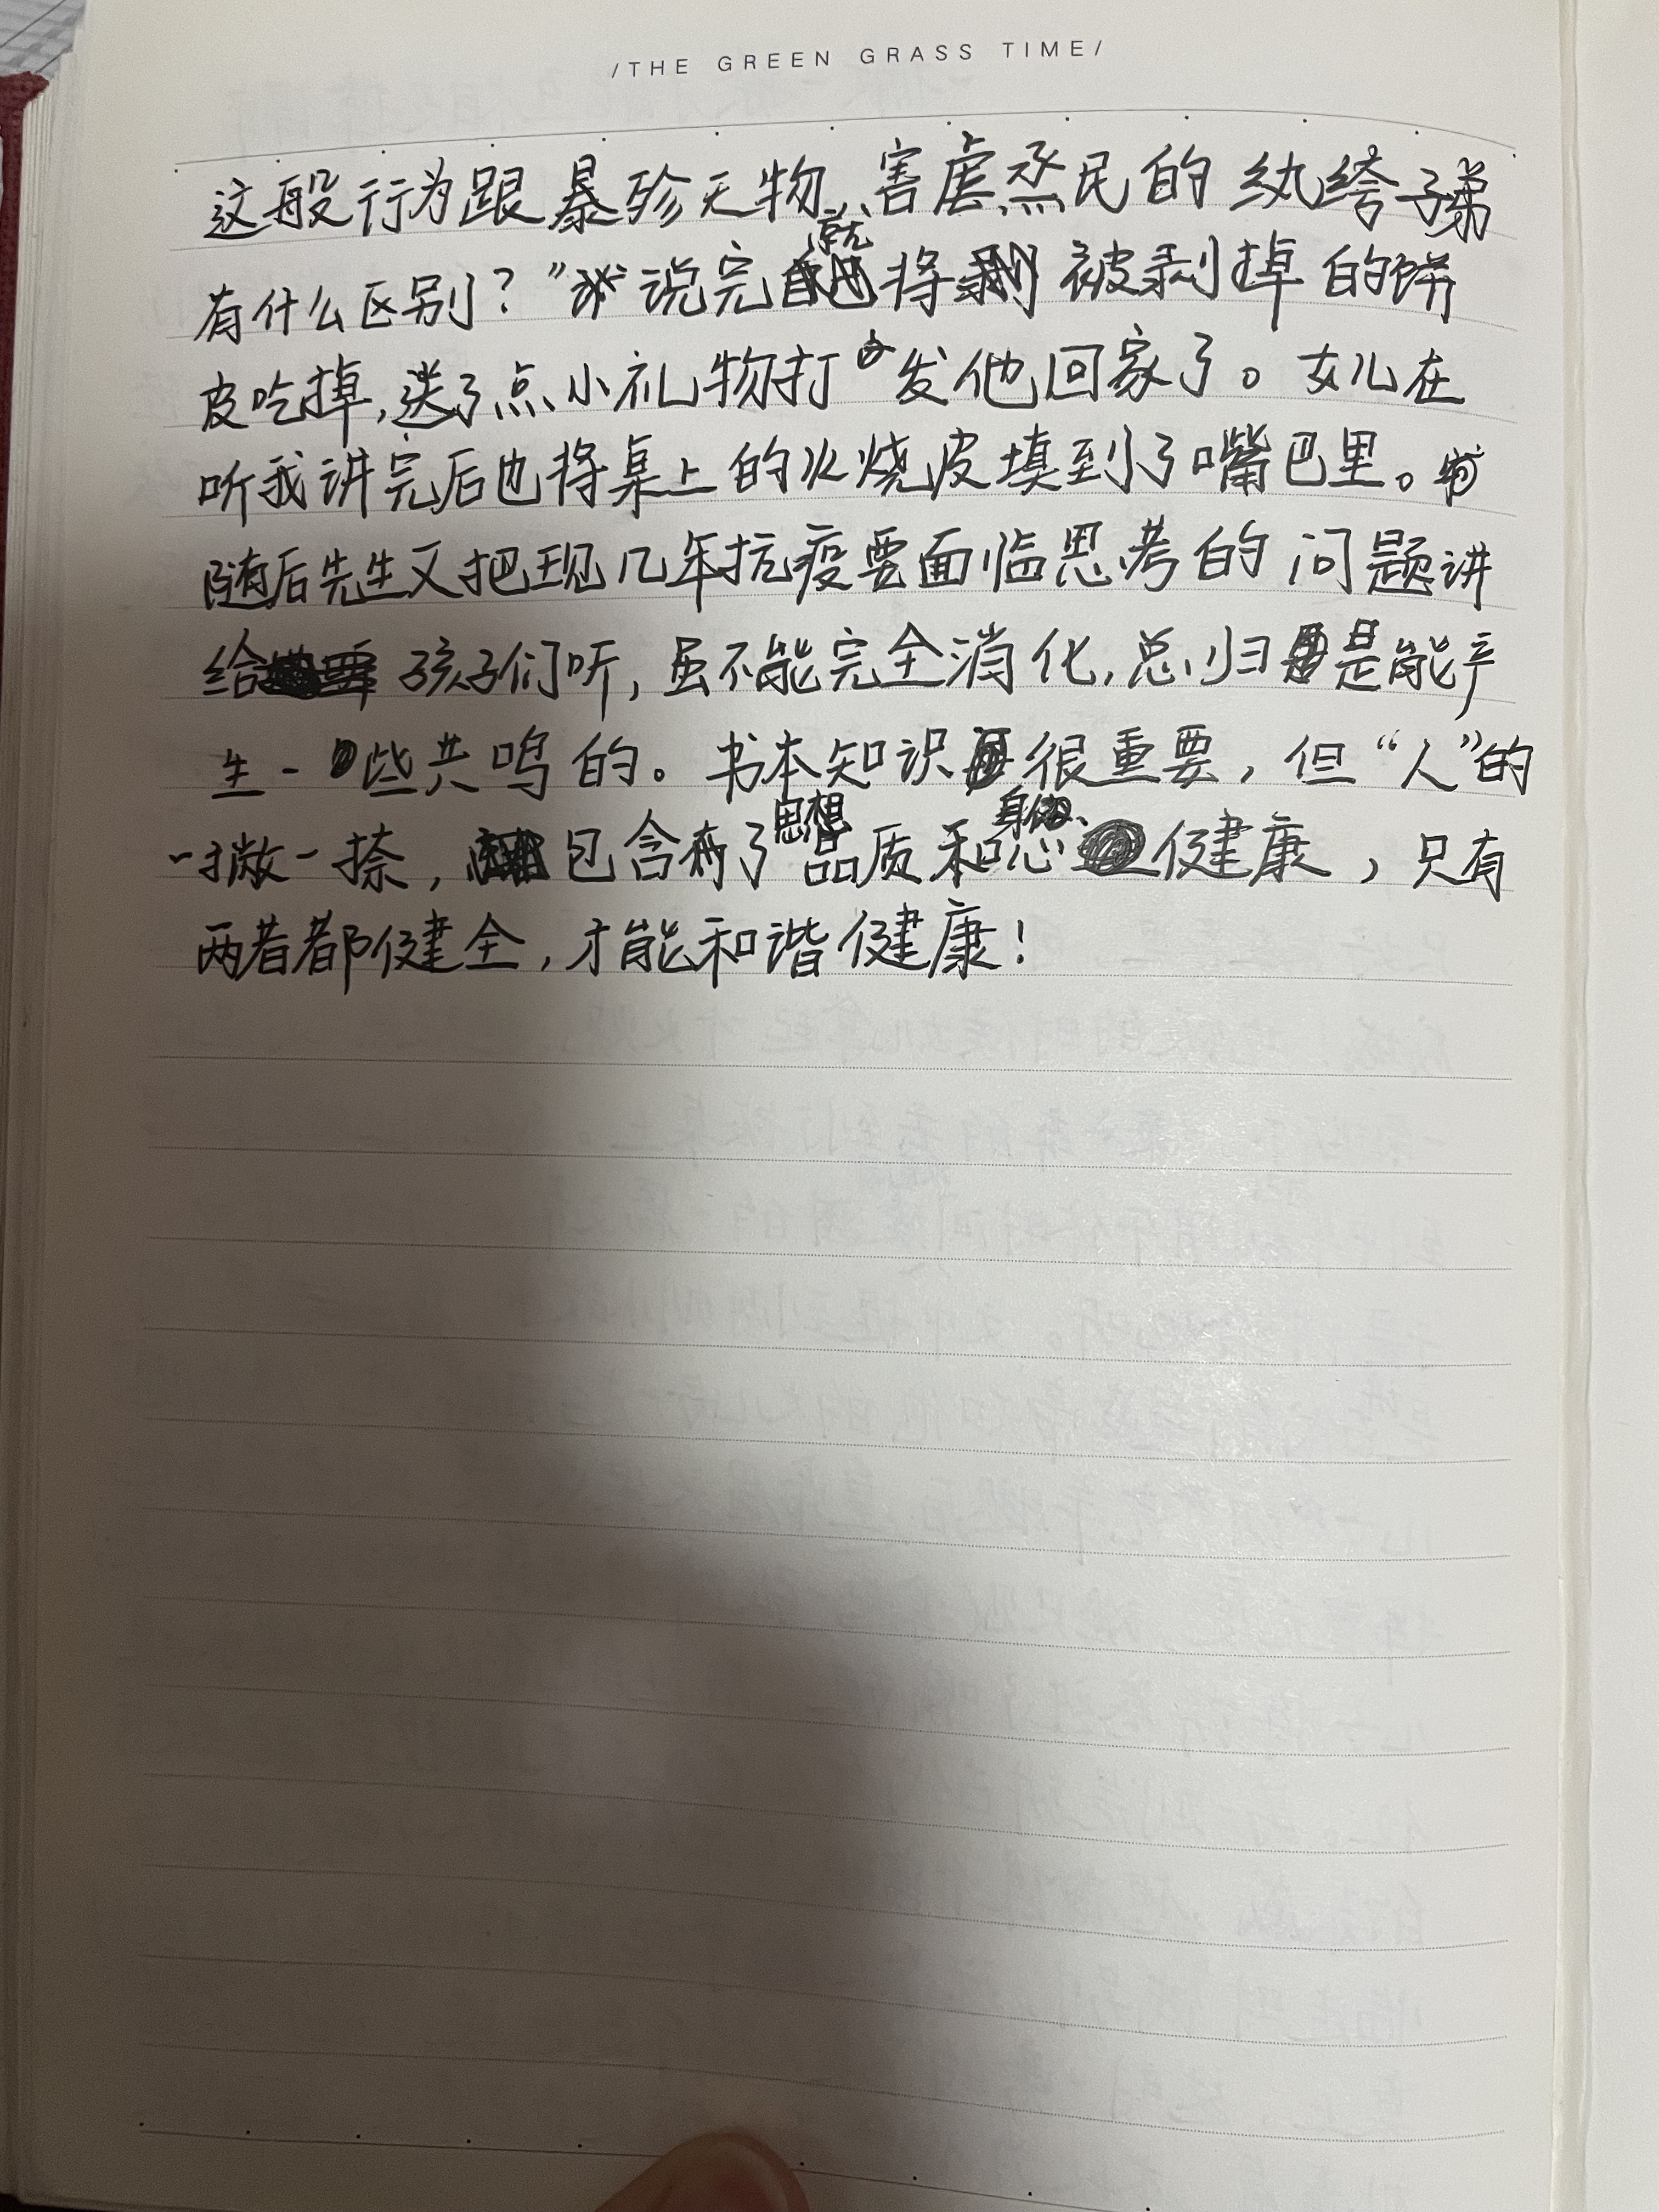 /THE GREEN GRASS TIME/
这般行为跟暴殄天物、害虐烝民的纨绔子弟
有什么区别？”说完就将被剥掉的饼
皮吃掉，送了点小礼物打发他回家了。女儿在
听我讲完后也将桌上的火烧皮填到了嘴巴里。
随后先生又把现几年抗疫要面临思考的问题讲
给孩子们听，虽不能完全消化，总归是能产
生一些共鸣的。书本知识很重要，但“人”的
一撇一捺，包含了思想品质和身体、心健康，只有
两者都健全，才能和谐健康！